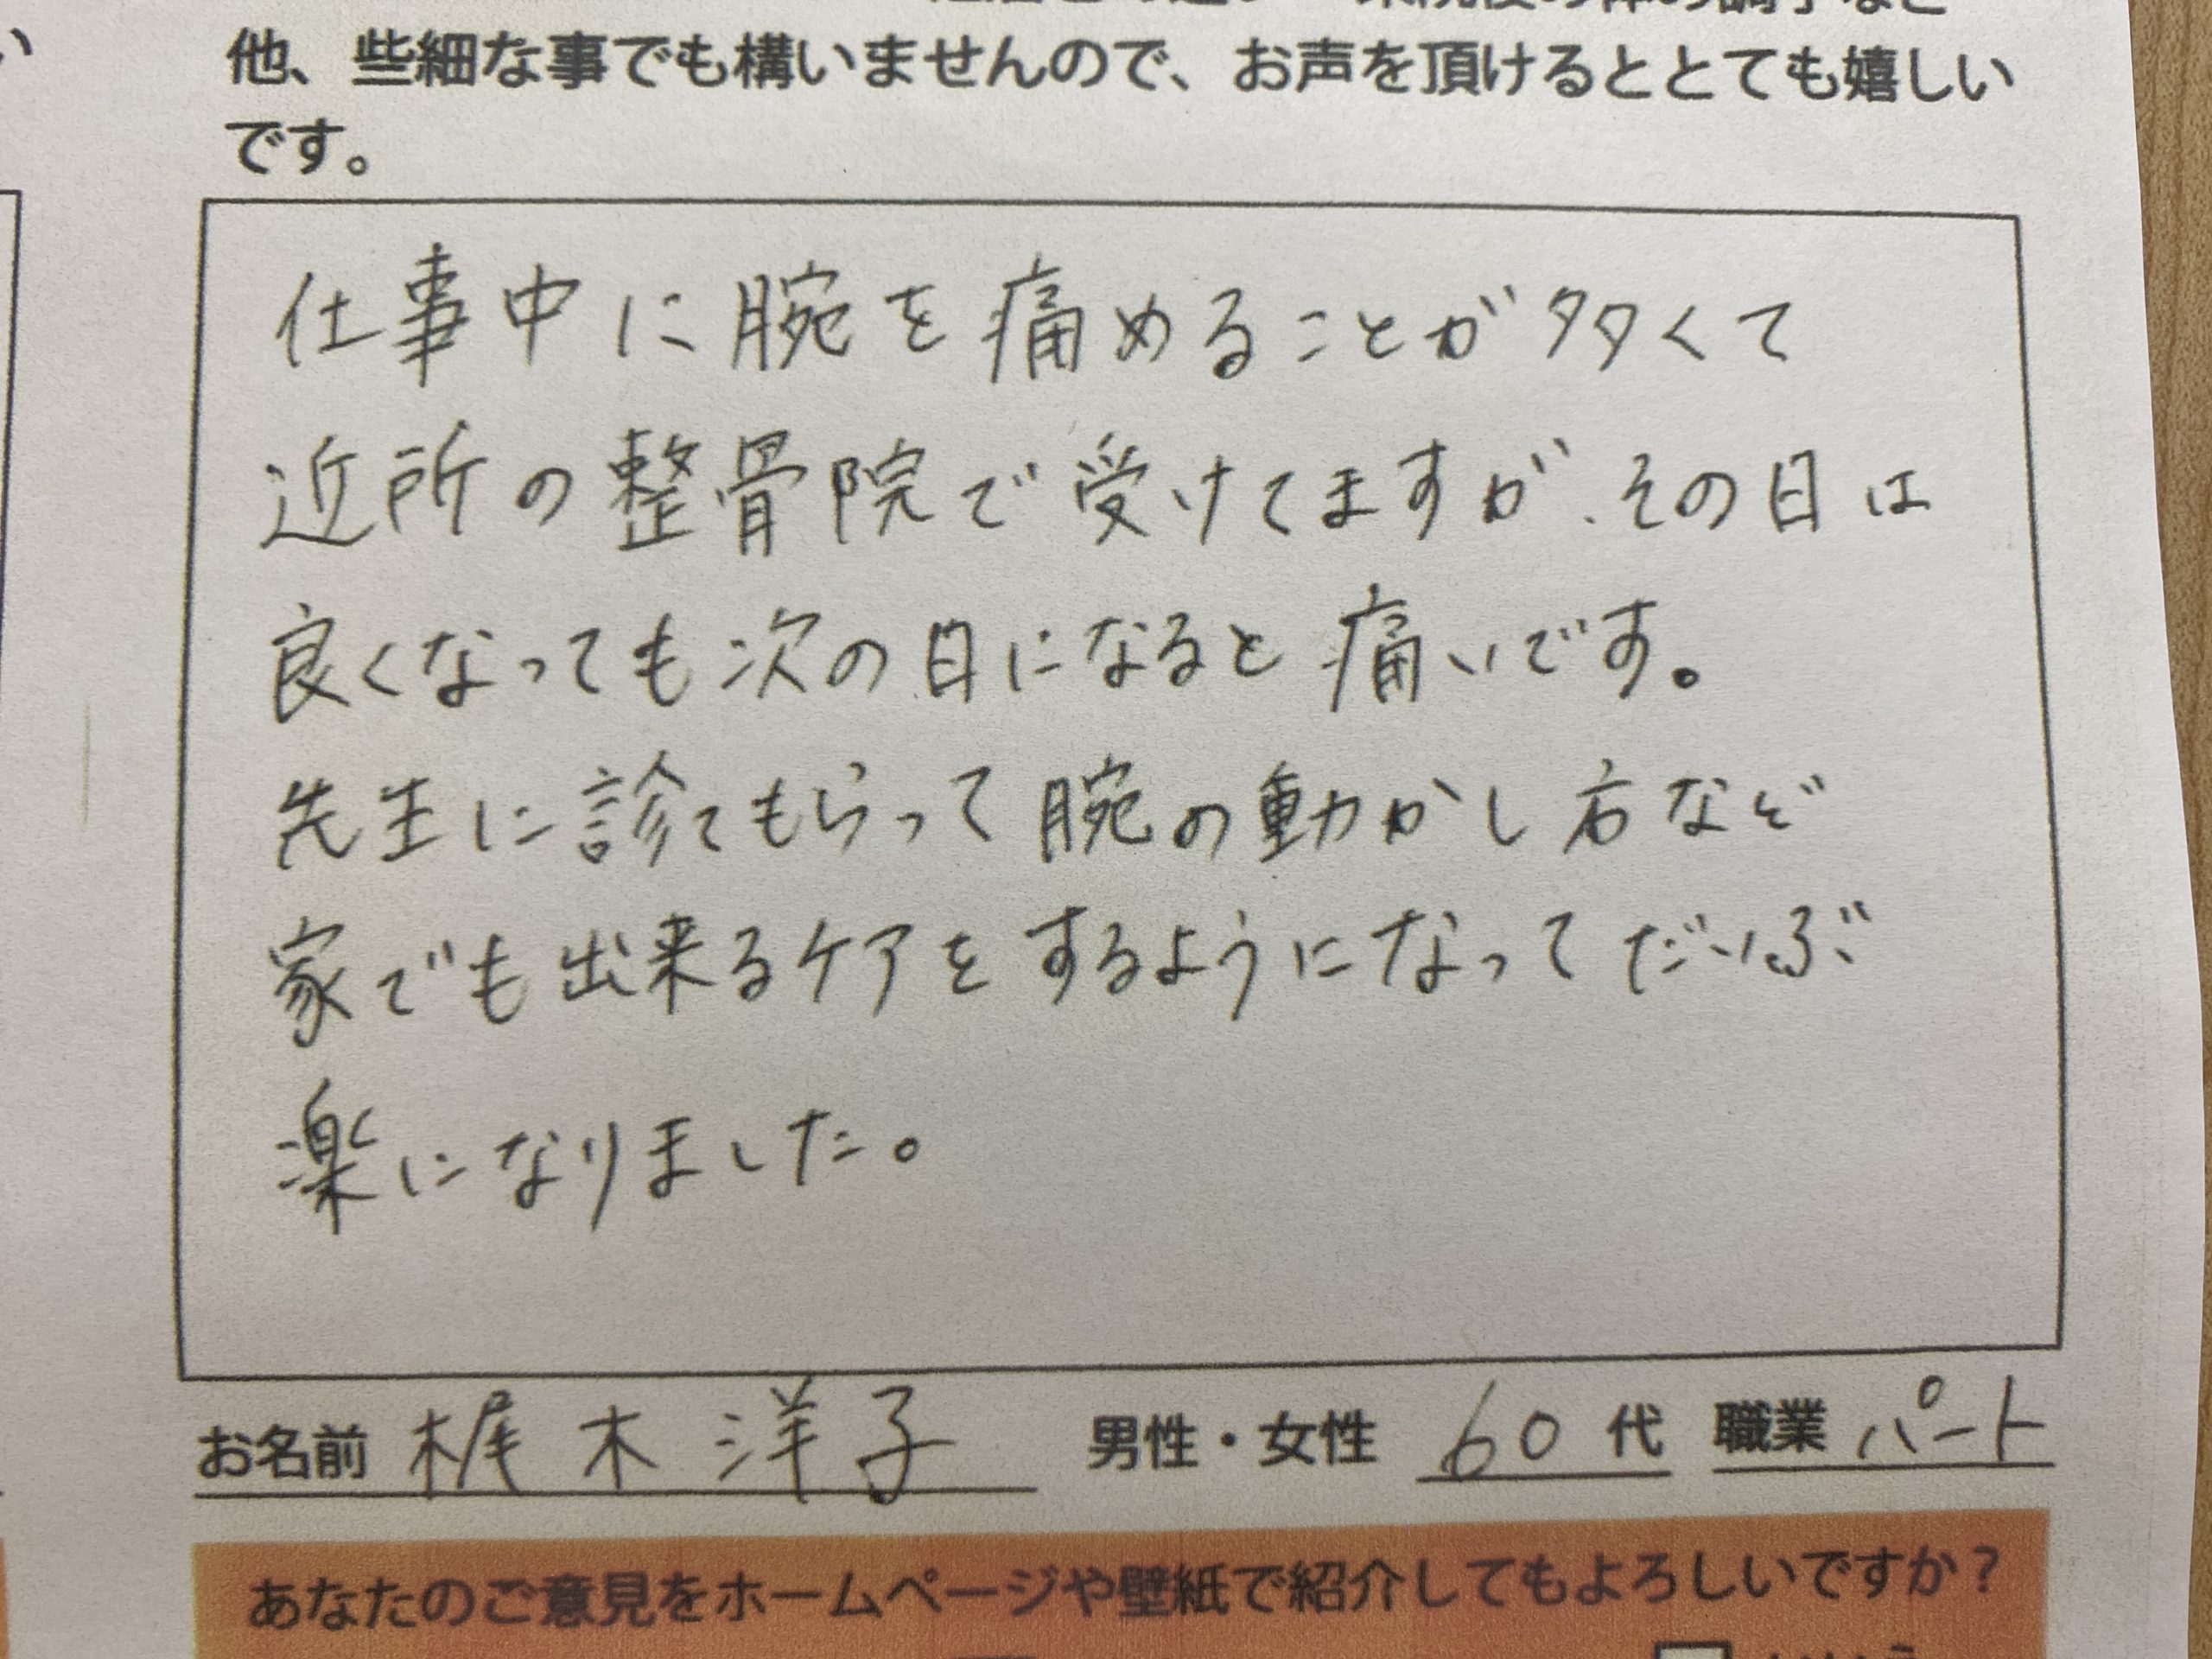 他、些細な事でも構いませんので、お声を頂けるととても嬉しい
です。
仕事中に腕を痛めることが多くて
近所の整骨院で受けてますが、その日は
良くなっても次の日になると痛いです。
先生に診てもらって腕の動かし方など
家でも出来るケアをするようになってだいぶ
楽になりました。
お名前 梶木洋子 男性・女性 60代 職業 パート
あなたのご意見をホームページや壁紙で紹介してもよろしいですか？